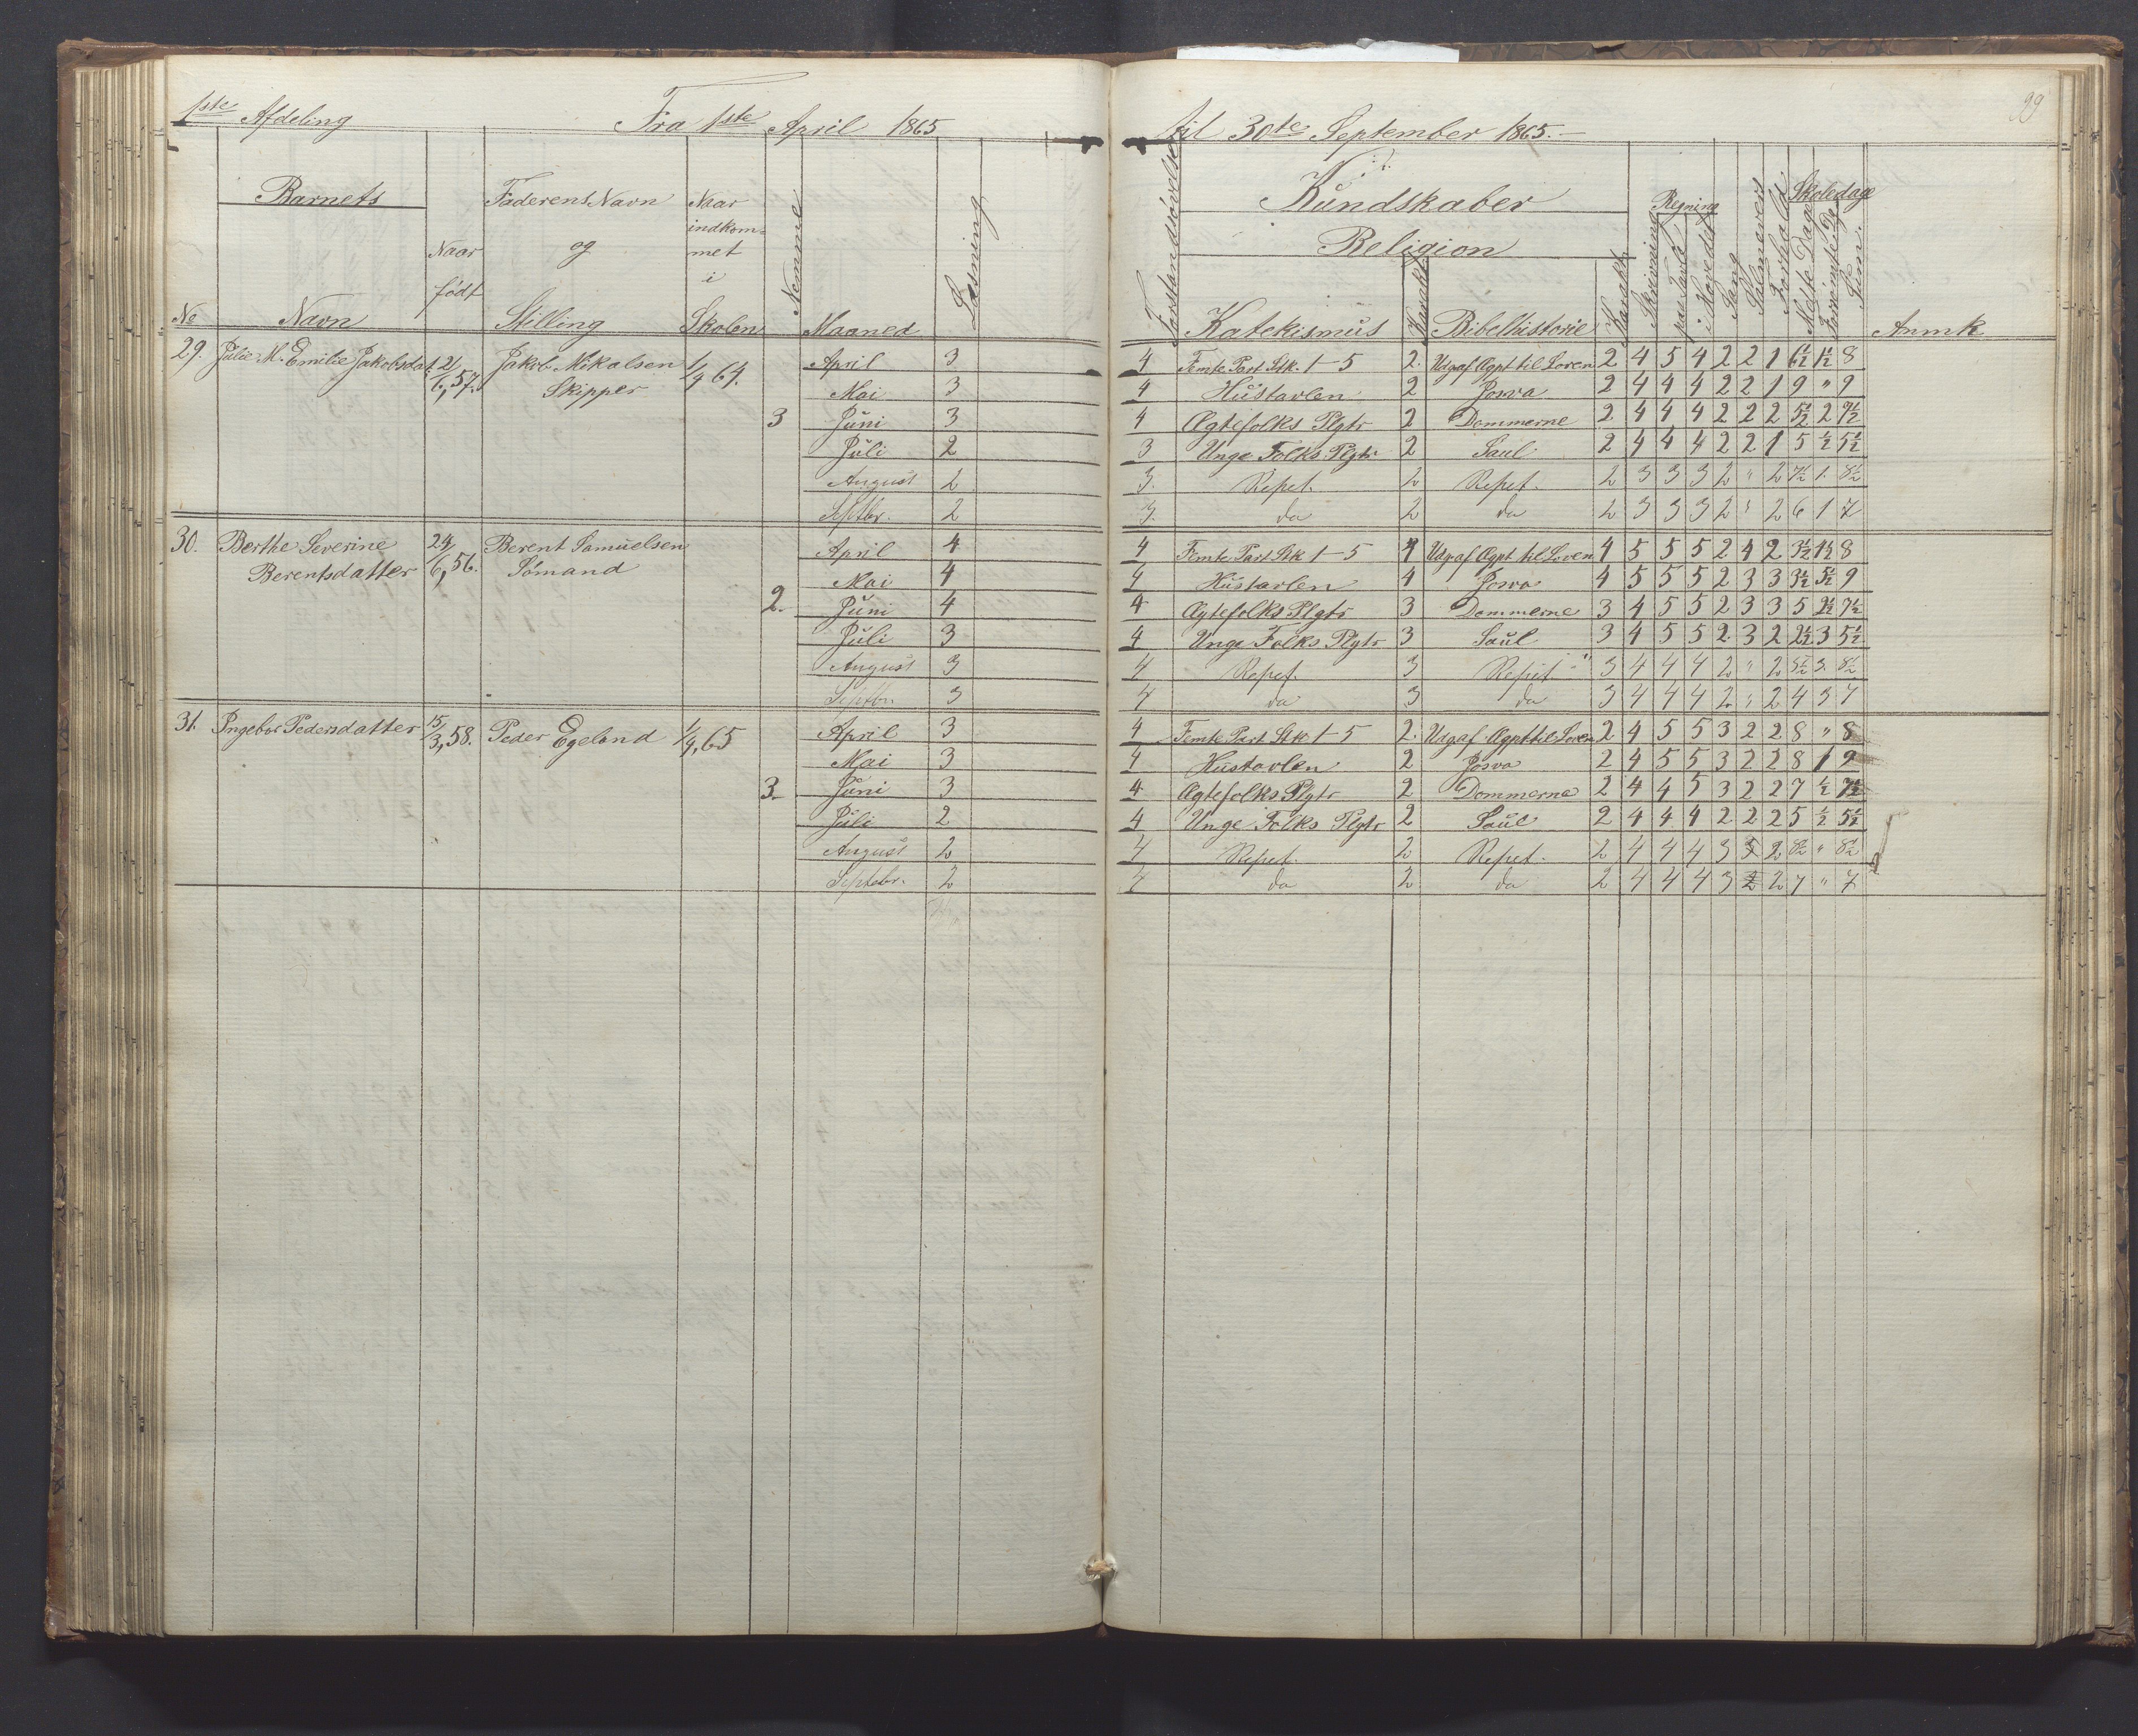 1ste Afdeling Fra 1ste April 1865
til 30te September 1865.
99
Barnets
No Navn
Naar født
Faderens Navn og Stilling
Naar indkommet i Skolen
Nemme
Maaned
Læsning
Forstandsøvelse
Kundskaber
Religion
Katekismus
Karakt.
Bibelhistorie
Karakt.
Skrivning
Regning
paa Tavle
i Hovedet
Sang
Skoledage
Forhold
Mødte Dage
Forsømte Da
Sum.
Anmk
29. Julie M. Emilie Jakobsdat. 21/6, 57. Jakob Mikalsen 1/9 64.
Skipper
3
April 3 4 Femte Part Stk. 1-5 2. Udg af Ægpt til Loven 2 4 5 4 2 2 1 6½ 1½ 8
Mai 3 4 Hustavlen 2 Josva 2 4 4 4 2 2 1 9 " 9
Juni 3 4 Ægtefolks Plgtr 2 Dommerne 2 4 4 4 2 2 2 5½ 2 7½
Juli 2 3 Unge Folks Plgtr 2 Saul 2 4 4 4 2 2 1 5 ½ 5½
August 2 3 Repet. 2 Repet. 2 3 3 3 2 " 2 7½ 1 8½
Septbr. 2 3 do 2 do 2 3 3 3 2 " 2 6 1 7
30. Berthe Severine 24/6, 56. Berent Samuelsen
Berentsdatter Sømand
2.
April 4 4 Femte Part Stk 1-5 4 Udg af Ægpt til Loven 4 5 5 5 2 4 2 3½ 4½ 8
Mai 4 4 Hustavlen 4 Josva 4 5 5 5 2 3 3 3½ 5½ 9
Juni 4 4 Ægtefolks Plgtr 3 Dommerne 3 4 5 5 2 3 3 5 2½ 7½
Juli 3 4 Unge Folks Plgtr 3 Saul 3 4 5 5 2 3 2 2½ 3 5½
August 3 4 Repet. 3 Repet 3 4 4 4 2 " 2 5½ 3 8½
Septbr. 3 4 do 3 do 3 4 4 4 2 " 2 4 3 7
31. Ingebor Pedersdatter 15/3, 58. Peder Egeland 1/4, 65
3.
April 3 4 Femte Part Stk 1-5 2. Udg af Ægpt til Loven 2 4 5 5 3 2 2 8 " 8
Mai 3 4 Hustavlen 2 Josva 2 4 5 5 3 2 2 8 1 9
Juni 3 4 Ægtefolks Plgtr 2 Dommerne 2 4 4 5 3 2 2 7 ½ 7½
Juli 2 4 Unge Folks Plgtr 2 Saul 2 4 4 4 2 2 2 5 ½ 5½
August 2 4 Repet. 2 Repet. 2 4 4 4 3 2 8½ " 8½
Septebr. 2 4 do 2 do 2 4 4 4 3 2 7 " 7